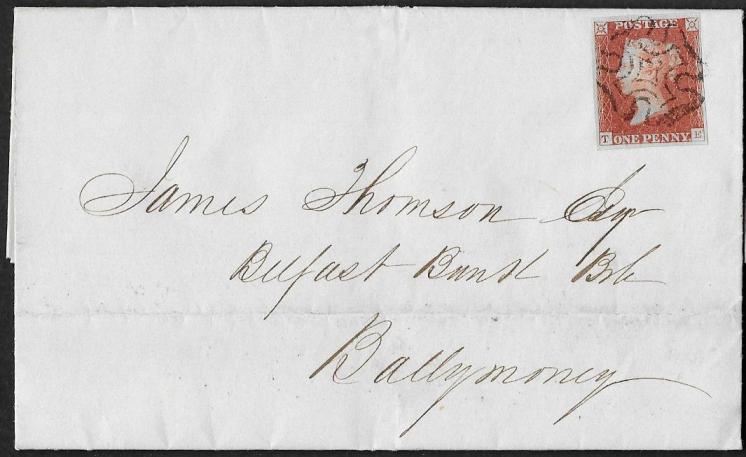 POSTAGE
T E
ONE PENNY.
James Thomson Esqr
Belfast Bank
Ballymoney